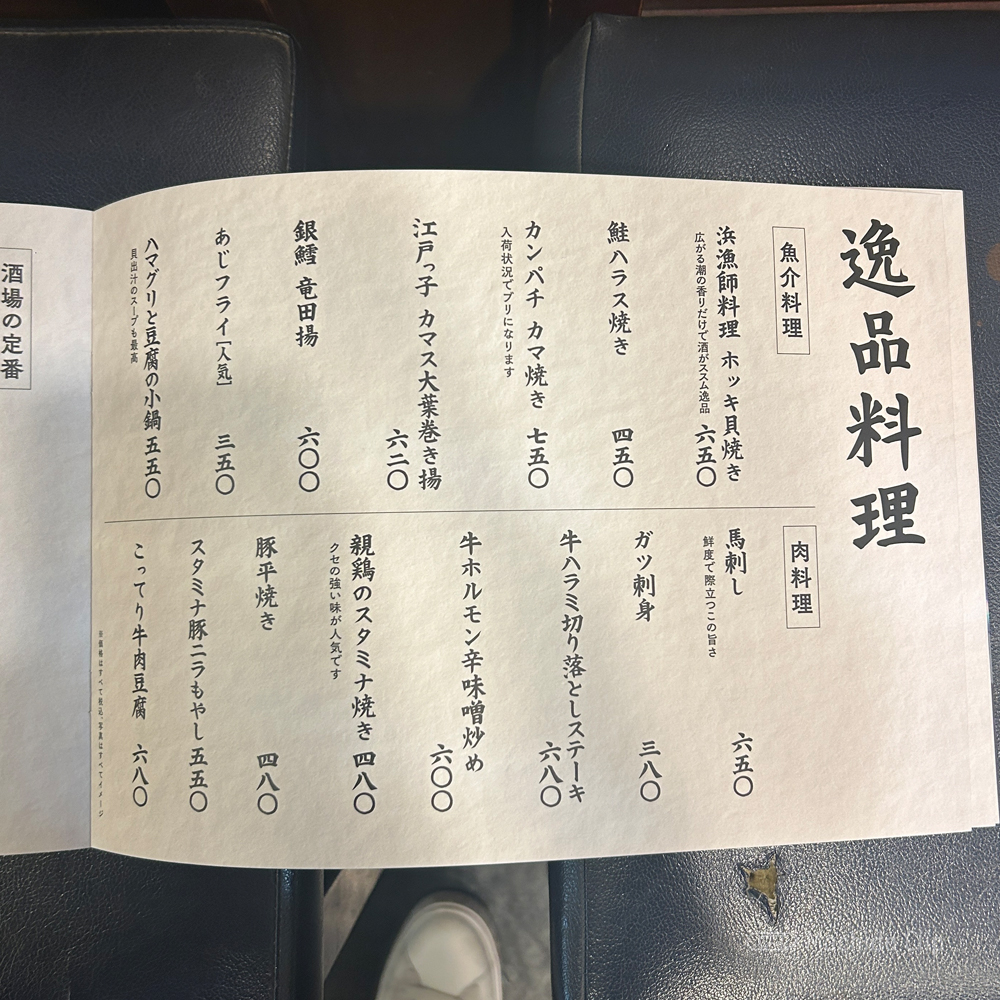 逸品料理
魚介料理
浜漁師料理 ホッキ貝焼き
広がる潮の香りだけで酒がススム逸品
六五〇
鮭ハラス焼き
四五〇
カンパチ カマ焼き
入荷状況でブリになります
七五〇
江戸っ子 カマス大葉巻き揚
六二〇
銀鱈 竜田揚
六〇〇
あじフライ[人気]
三五〇
ハマグリと豆腐の小鍋
貝出汁のスープも最高
五五〇
肉料理
馬刺し
鮮度で際立つこの旨さ
六五〇
ガッ刺身
三八〇
牛ハラミ切り落としステーキ
六八〇
牛ホルモン辛味噌炒め
六〇〇
親鶏のスタミナ焼き
クセの強い味が人気です
四八〇
豚平焼き
四八〇
スタミナ豚ニラもやし
五五〇
こってり牛肉豆腐
六八〇
※価格はすべて税込、写真はすべてイメージ
酒場の定番